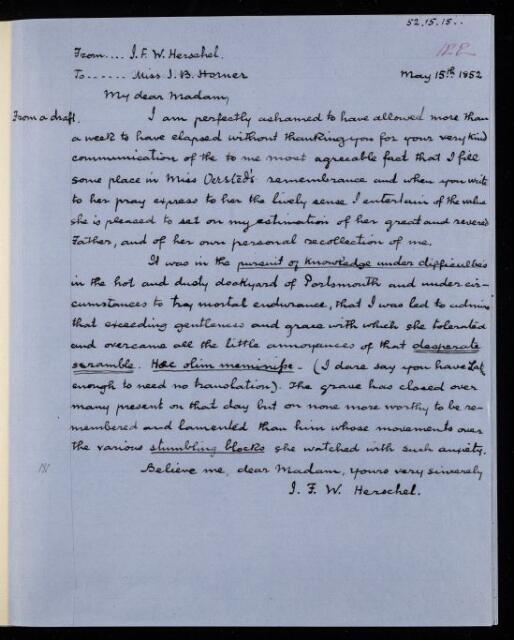 52.15.15..
From.... J. F. W. Herschel.
To...... Miss J. B. Horner
May 15th 1852
My dear Madam,
From a draft.
I am perfectly ashamed to have allowed more than
a week to have elapsed without thanking you for your very kind
communication of the to me most agreeable fact that I fill
some place in Miss Oersted's remembrance and when you write
to her pray express to her the lively sense I entertain of the value
she is pleased to set on my estimation of her great and revered
Father, and of her own personal recollection of me.
It was in the pursuit of knowledge under difficulties
in the hot and dusty dockyard of Portsmouth and under cir-
cumstances to try mortal endurance, that I was led to admire
that exceeding gentleness and grace with which she tolerated
and overcame all the little annoyances of that desperate
scramble. Haec olim meminisse - (I dare say you have Lat.
enough to need no translation). The grave has closed over
many present on that day but on none more worthy to be re-
membered and lamented than him whose movements over
the various stumbling blocks she watched with such anxiety.
Believe me, dear Madam, yours very sincerely
J. F. W. Herschel.